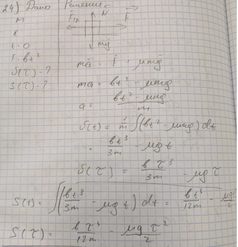 24) Дано Решение.
M
K
t=0
F=bt²
S(τ)-?
S(τ)-?
Fтр N F
mg
ma = F - μmg
ma = bt² - μmg
a = bt² - μmg / m
S(t) = 1/m ∫(bt² - μmg) dt
= bt³/3m - μgt
S(τ) = bτ³/3m - μgτ
S(t) = ∫(bt³/3m - μgt) dt = bt⁴/12m - μg/2
S(τ) = bτ⁴/12m - μgτ²/2